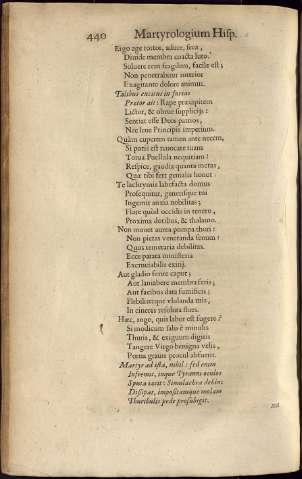 440 Martyrologium Hisp.
Ergo age tortor, adure, seca,
Divide membra coacta luto.
Soluere rem fragilem, facile est;
Non penetrabitur interior
Exagitante dolore animus.
Talibus excitus in furias
Prætor ait: Rape præcipitem
Lictor, & obrue supplicijs:
Sentiat esse Deos patrios,
Nec leue Principis imperium.
Quàm cuperem tamen ante necem,
Si potis est reuocare tuam
Torua Puellula nequitiam!
Respice, gaudia quanta metas,
Quæ tibi fert genialis honor:
Te lacrymis labefacta domus
Prosequitur, generisque tui
Ingemit anxia nobilitas;
Flore quòd occidis in tenero,
Proxima dotibus, & thalamo.
Non mouet aurea pompa thori?
Non pietas veneranda senum?
Quos temeraria debilitas.
Ecce parata ministeria
Excruciabilis exitij.
Aut gladio feriere caput;
Aut laniabere membra feris;
Aut facibus data fumificis;
Flebiliterque vlulanda tuis,
In cineres resoluta flues.
Hæc, rogo, quis labor est fugere?
Si modicum salis è minulis
Thuris, & exiguum digitis
Tangere Virgo benigna velis,
Pœna grauis procul abfuerit.
Martyr ad ista, nihil: sed enim
Infremit, inque Tyranni oculos
Sputa iacit: Simulachra dehinc
Dissipat, impositamque molam
Thuribulis pede prosubigit.